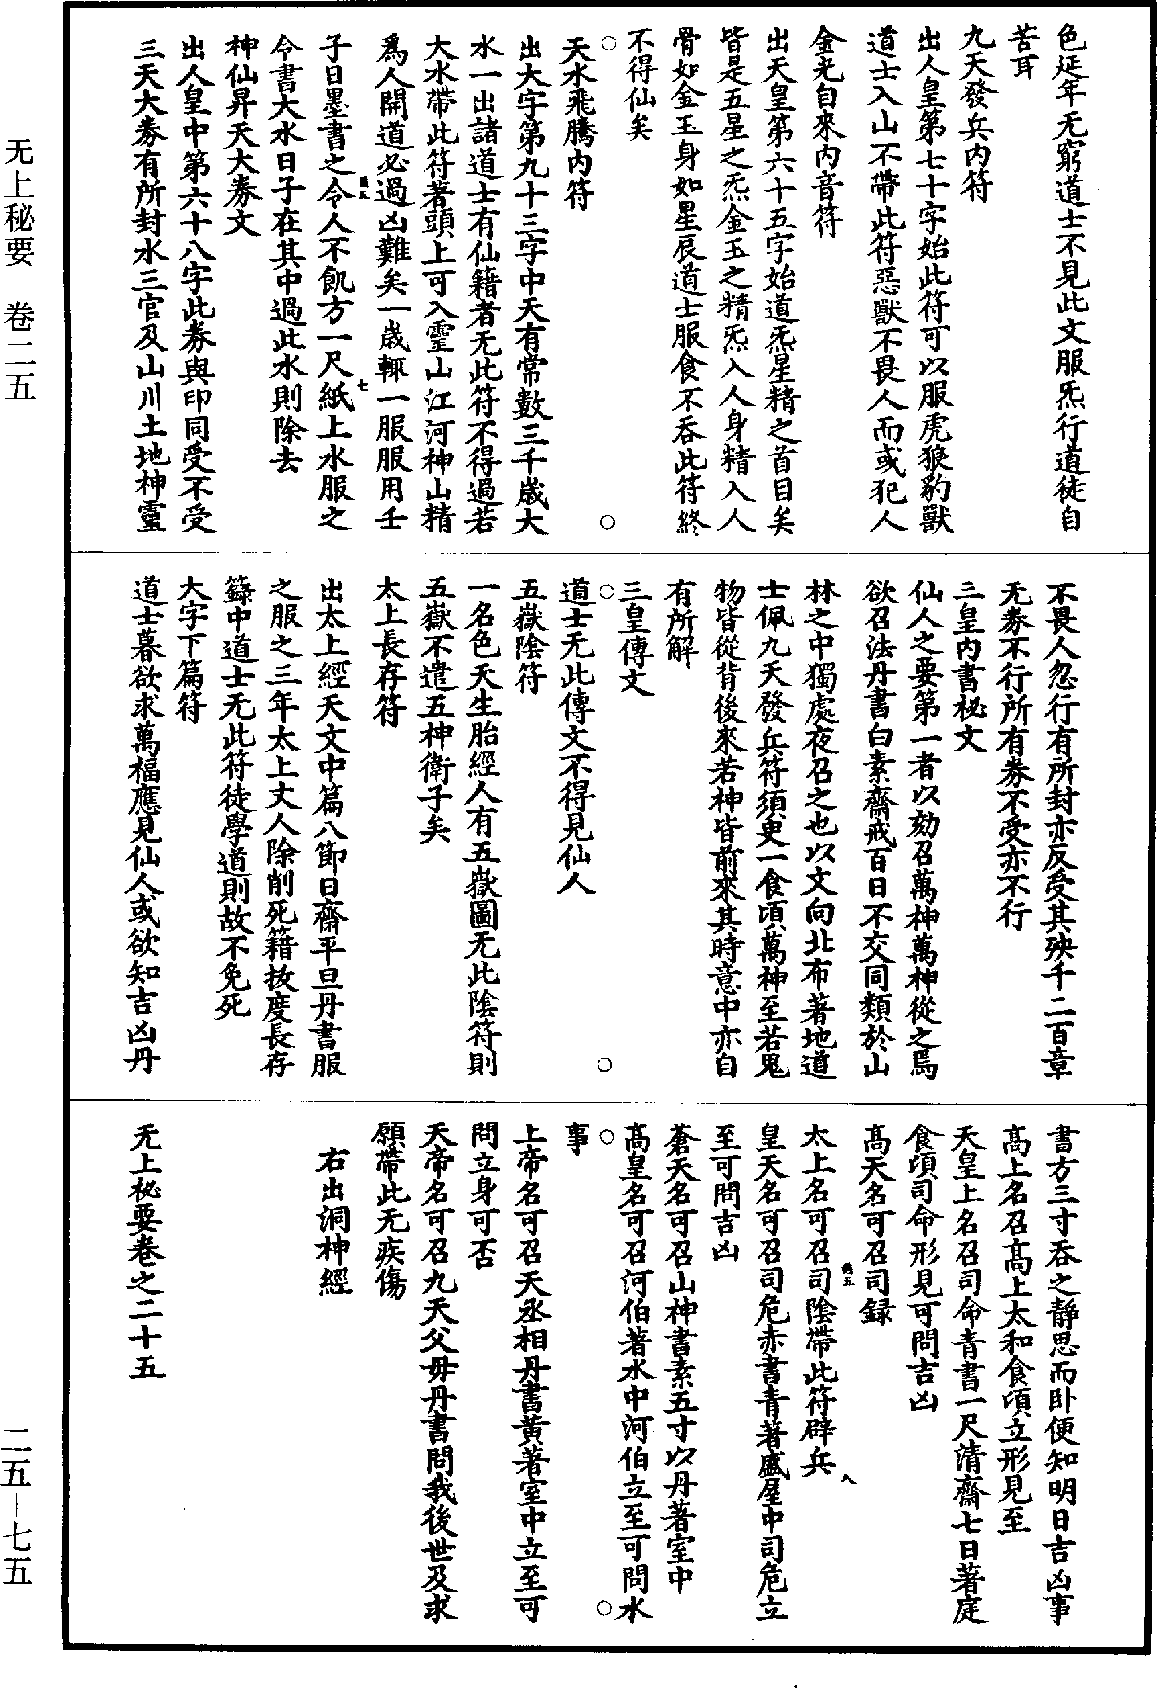 色延年无窮道士不見此文服炁行道徒自
苦耳
九天發兵内符
出人皇第七十字始此符可以服虎狼豹獸
道士入山不帶此符惡獸不畏人而或犯人
金光自來内音符
出天皇第六十五字始道炁星精之首目矣
皆是五星之炁金玉之精炁入人身精入人
骨如金玉身如星辰道士服食不吞此符終
不得仙矣
天水飛騰内符
出大字第九十三字中天有常數三千歲大
水一出諸道士有仙籍者无此符不得過若
大水帶此符著頭上可入靈山江河神山精
爲人開道必過凶難矣一歲輙一服服用壬
子日墨書之令人不飢方一尺紙上水服之
七
令書大水日子在其中過此水則除去
神仙昇天大券文
出人皇中第六十八字此券與印同受不受
三天大券有所封水三官及山川土地神靈
不畏人忽行有所封亦反受其殃千二百章
无券不行所有券不受亦不行
三皇内書秘文
仙人之要第一者以劾召萬神萬神從之焉
欲召法丹書白素齋戒百日不交同類於山
林之中獨處夜召之也以文向北布著地道
士佩九天發兵符須臾一食頃萬神至若鬼
物皆從背後來若神皆前來其時意中亦自
有所解
三皇傳文
道士无此傳文不得見仙人
五嶽陰符
一名色天生胎經人有五嶽圖无此陰符則
五嶽不遣五神衛子矣
太上長存符
出太上經天文中篇八節日齋平旦丹書服
之服之三年太上丈人除削死籍拔度長存
籙中道士无此符徒學道則故不免死
大字下篇符
道士暮欲求萬福應見仙人或欲知吉凶丹
書方三寸吞之靜思而卧便知明日吉凶事
髙上名召髙上太和食頃立形見至
天皇上名召司命青書一尺清齋七日著庭
食頃司命形見可問吉凶
髙天名可召司録
太上名可召司陰帶此符辟兵
八
皇天名可召司危赤書青著處屋中司危立
至可問吉凶
蒼天名可召山神書素五寸以丹著室中
髙皇名可召河伯著水中河伯立至可問水
事
上帝名可召天丞相丹書黄著室中立至可
問立身可否
天帝名可召九天父母丹書問我後世及求
願帶此无疾傷
右出洞神經
无上秘要卷之二十五
无上秘要 卷二五
二五—七五